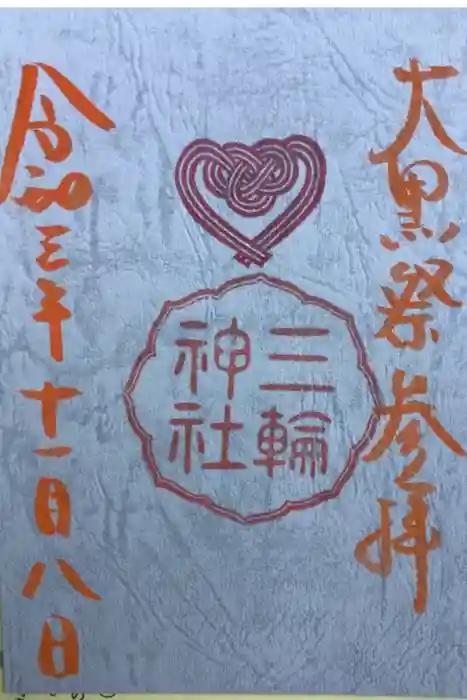 大黒祭参拝
三輪
神社
令和三年十一月八日